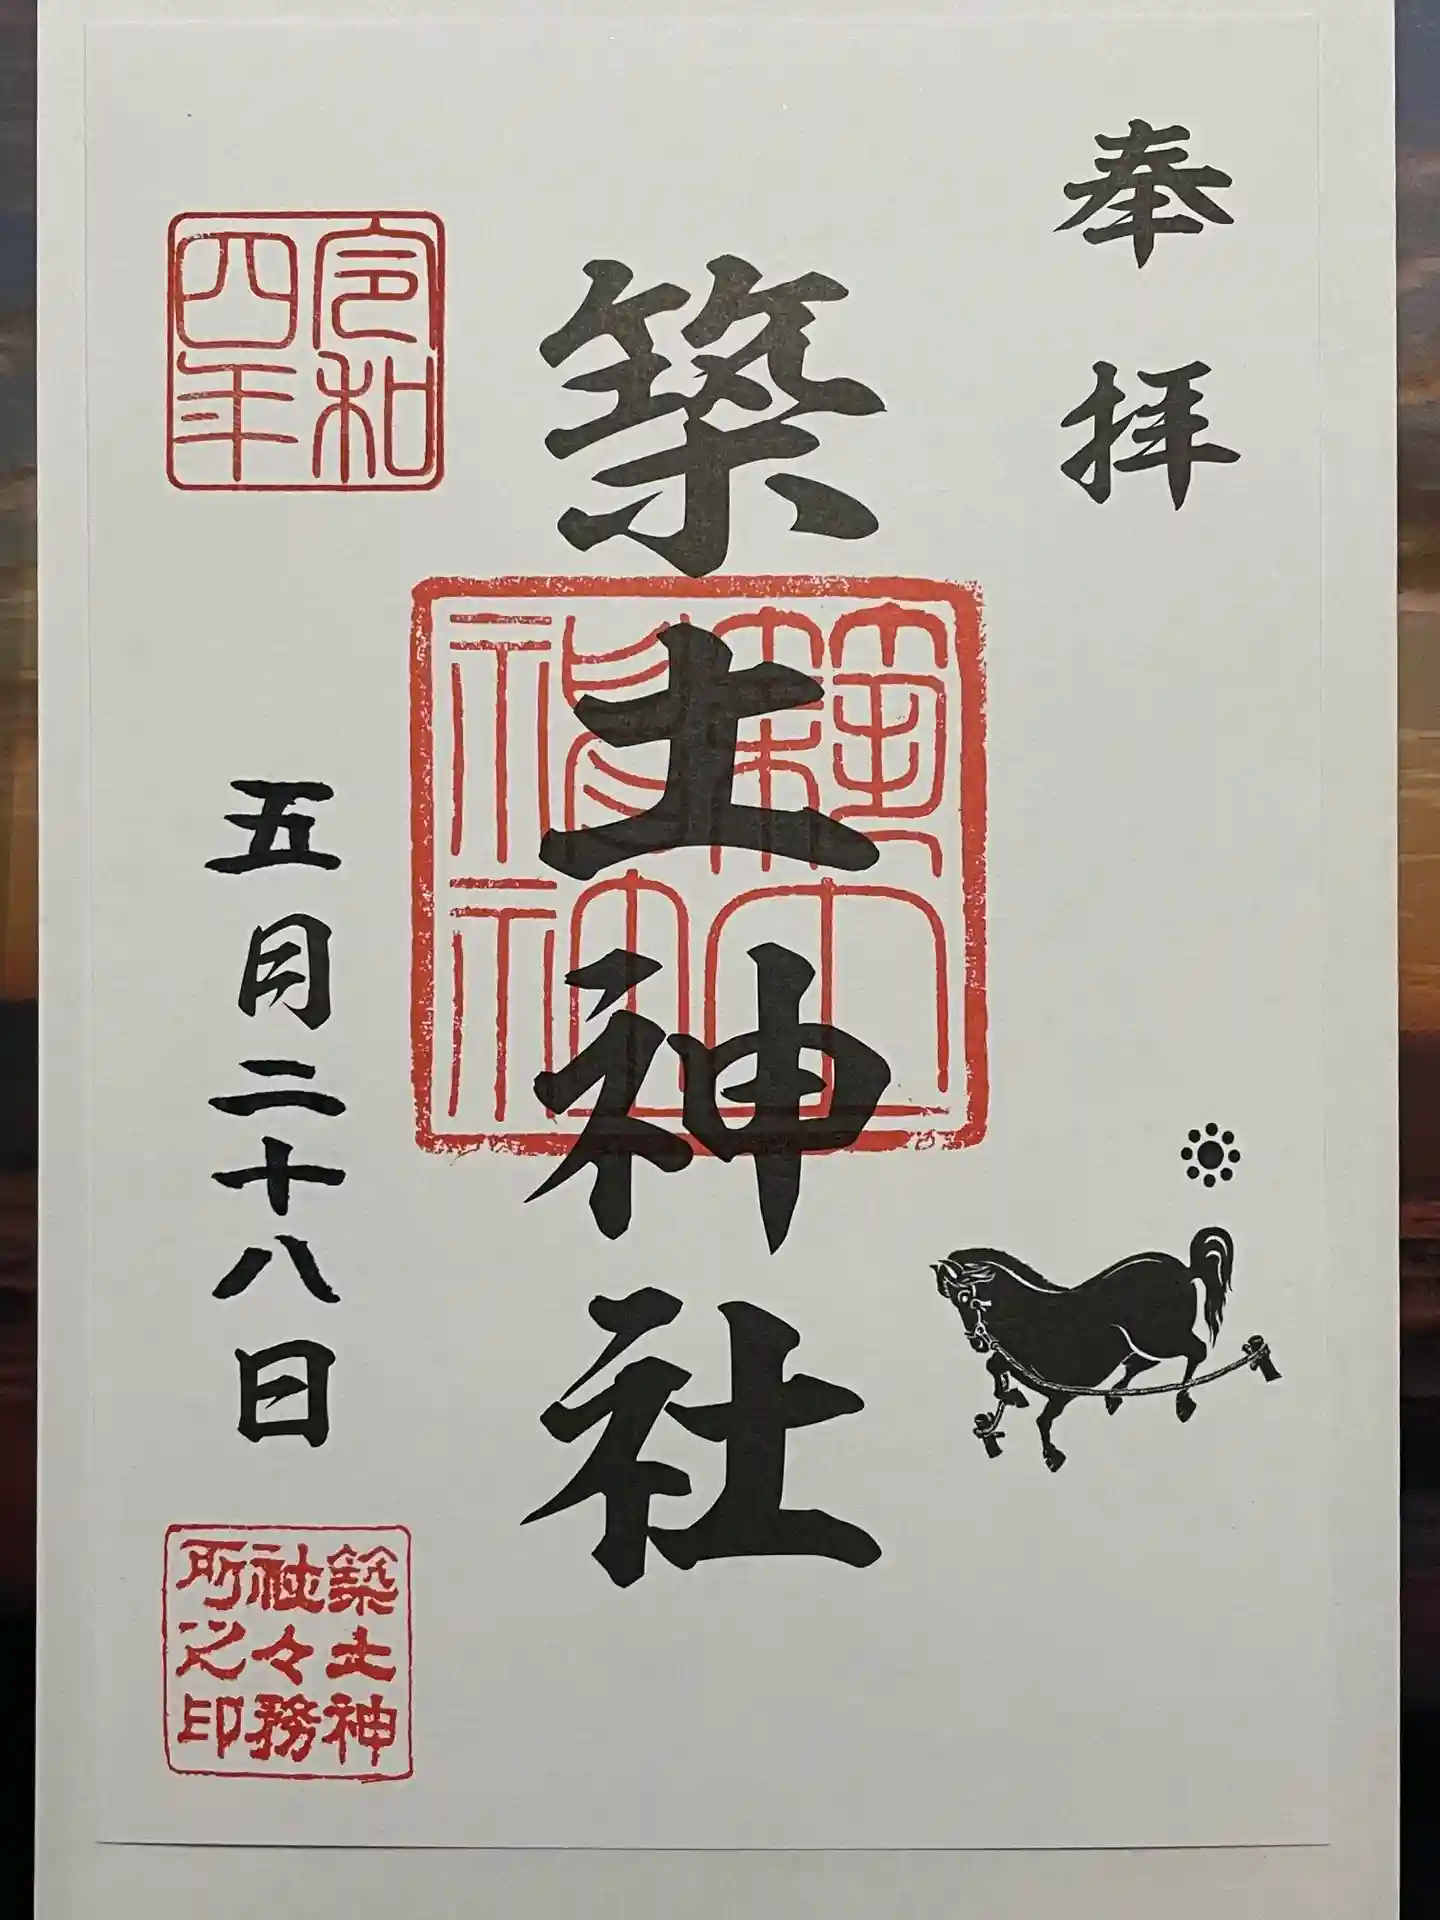 奉拝
築土神社
築土神社
令和四年
五月二十八日
築土神社々務所之印